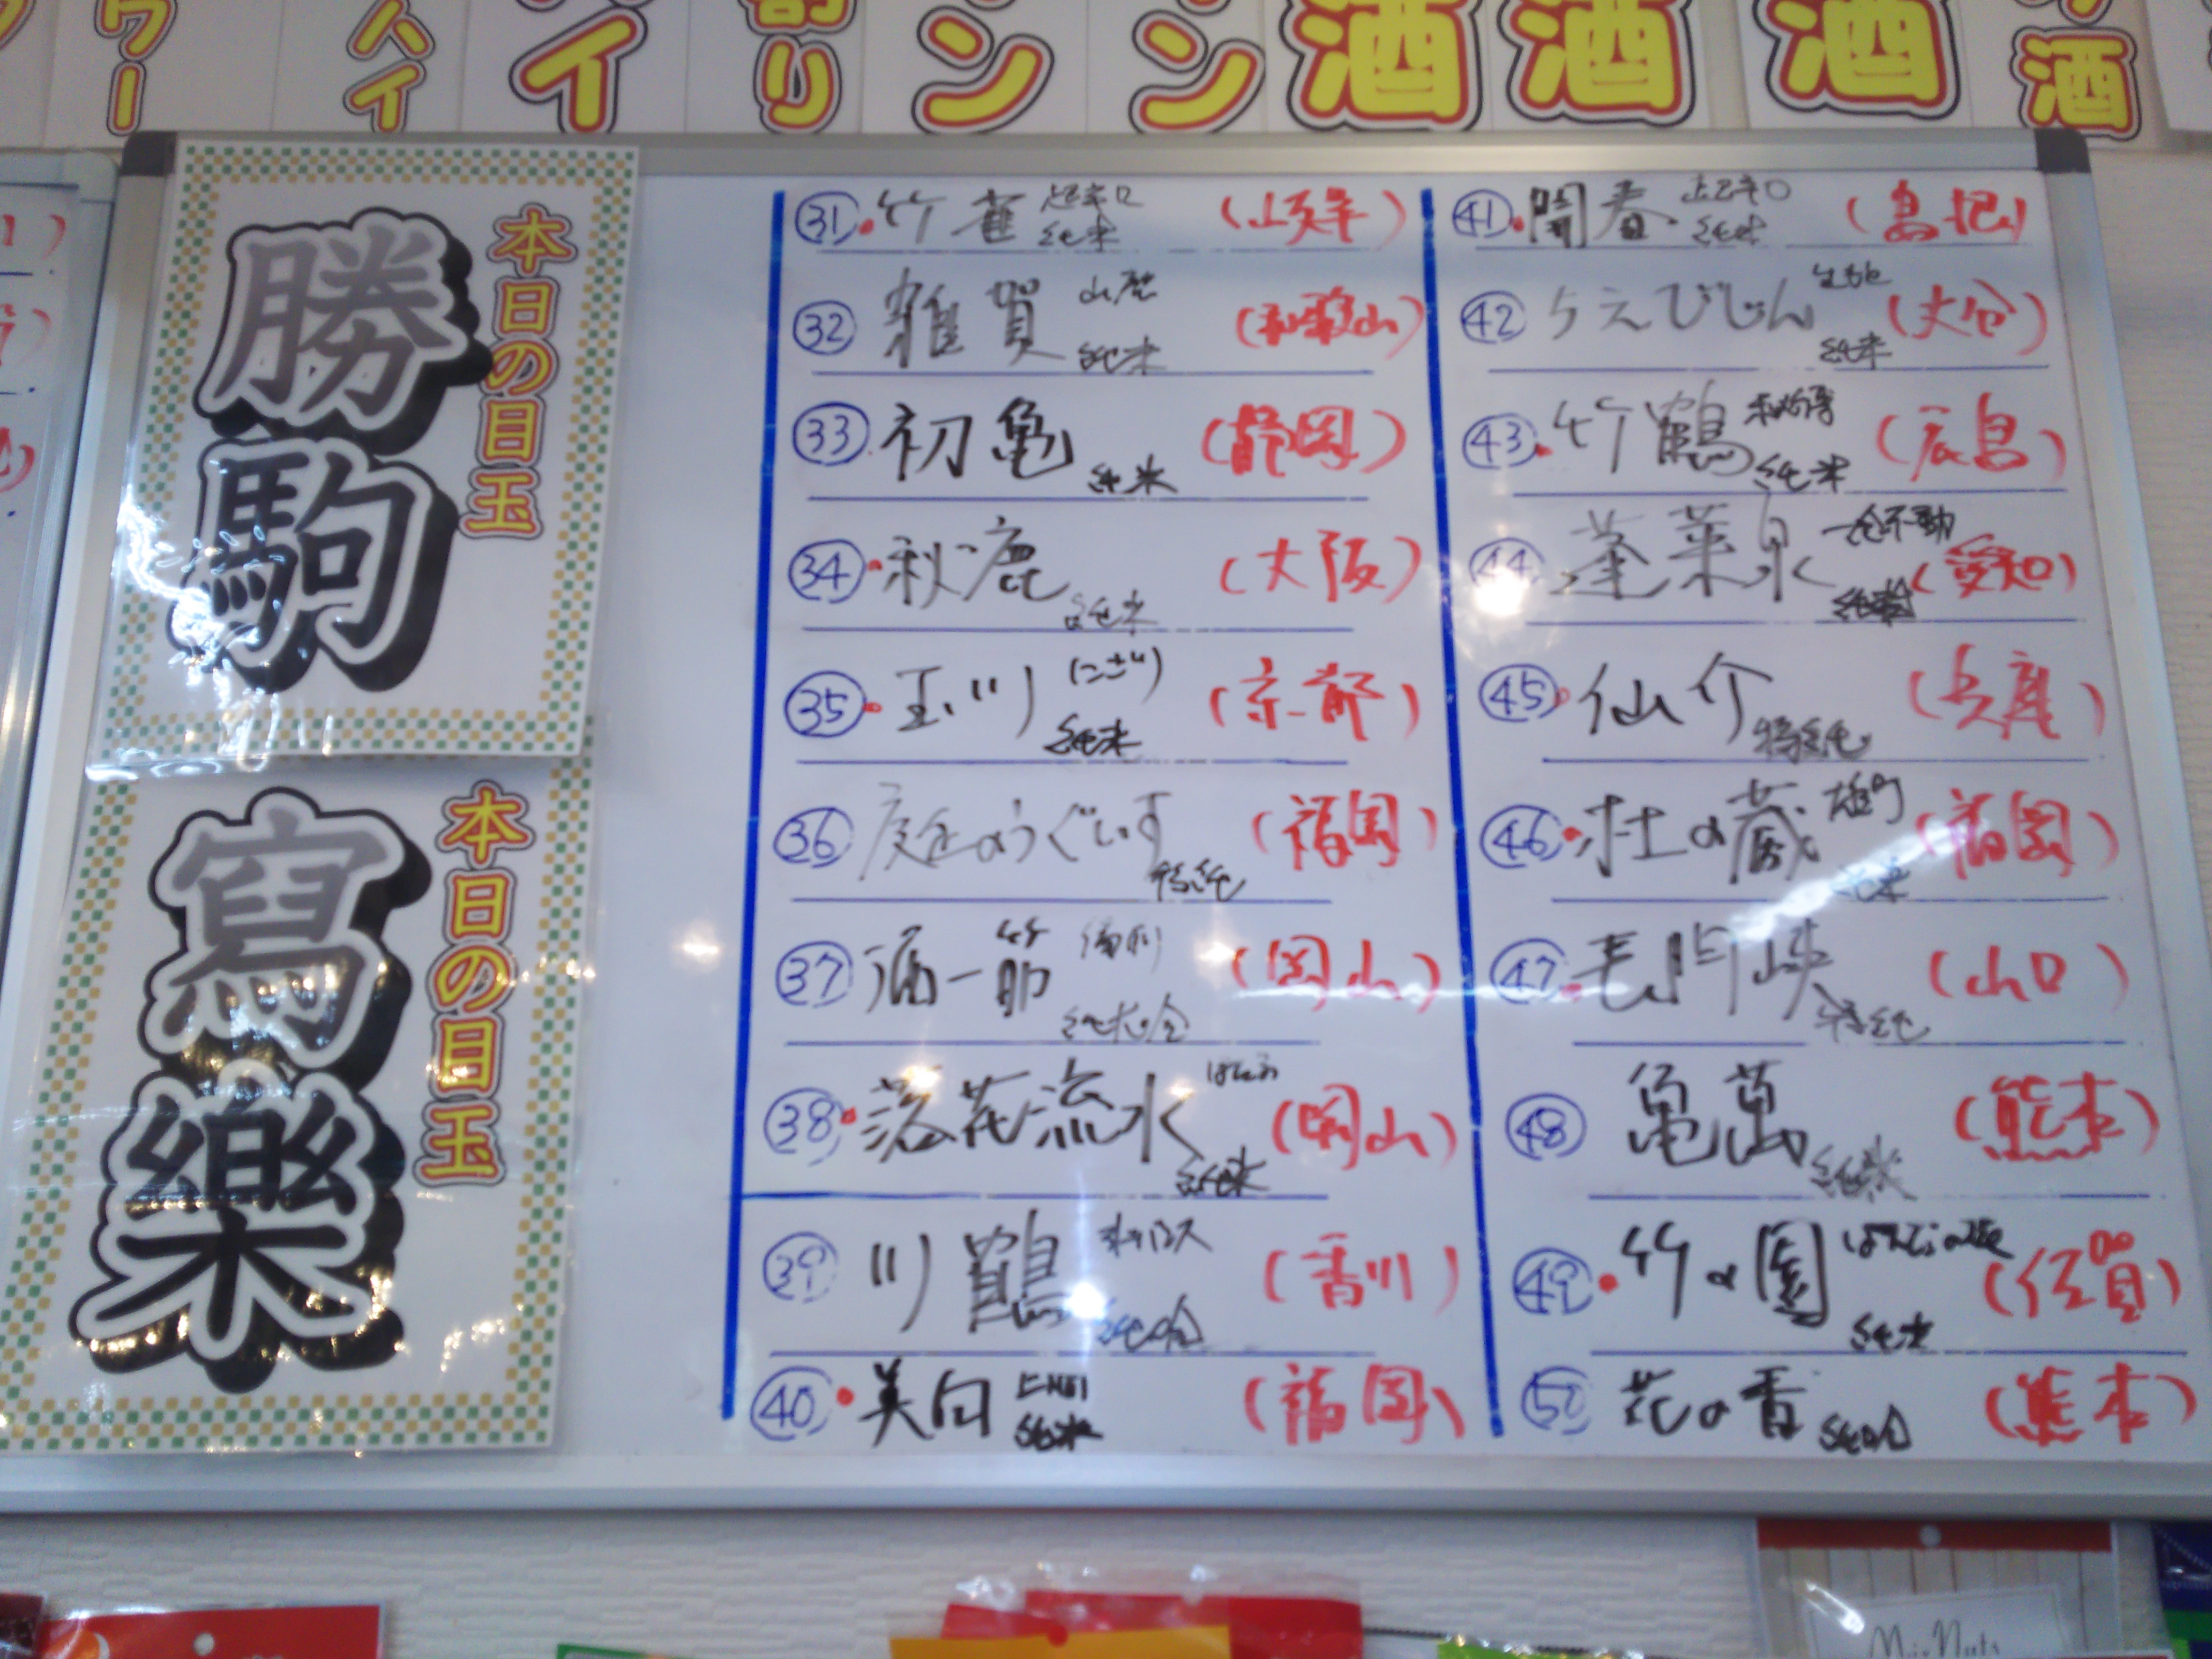 ワー
ハイ
イ
割り
ン
ン
酒
酒
酒
酒
本日の目玉
勝駒
本日の目玉
寫樂
㉛ 竹雀 超辛口 純米 (岐阜)
㉜ 雑賀 山廃 純米 (和歌山)
㉝ 初亀 純米 (静岡)
㉞ 秋鹿 純米 (大阪)
㉟ 玉川 (にごり) 純米 (京都)
㊱ 庭のうぐいす 特純 (福岡)
㊲ 酒一筋 純米吟 (岡山)
㊳ 落花流水 純米 (岡山)
㊴ 川鶴 純吟 (香川)
㊵ 美田 山廃 純米 (福岡)
㊶ 開春 超辛口 純米 (島根)
㊷ ちえびじん 純米 (大分)
㊸ 竹鶴 純米 (広島)
㊹ 蓬莱泉 一念不動 (愛知)
㊺ 仙介 特純 (兵庫)
㊻ 杜の蔵 雄町 純米 (福岡)
㊼ 長門峡 特純 (山口)
㊽ 亀萬 純米 (熊本)
㊾ 竹の園 純米 (佐賀)
㊿ 花の香 純吟 (熊本)
Mix Nuts